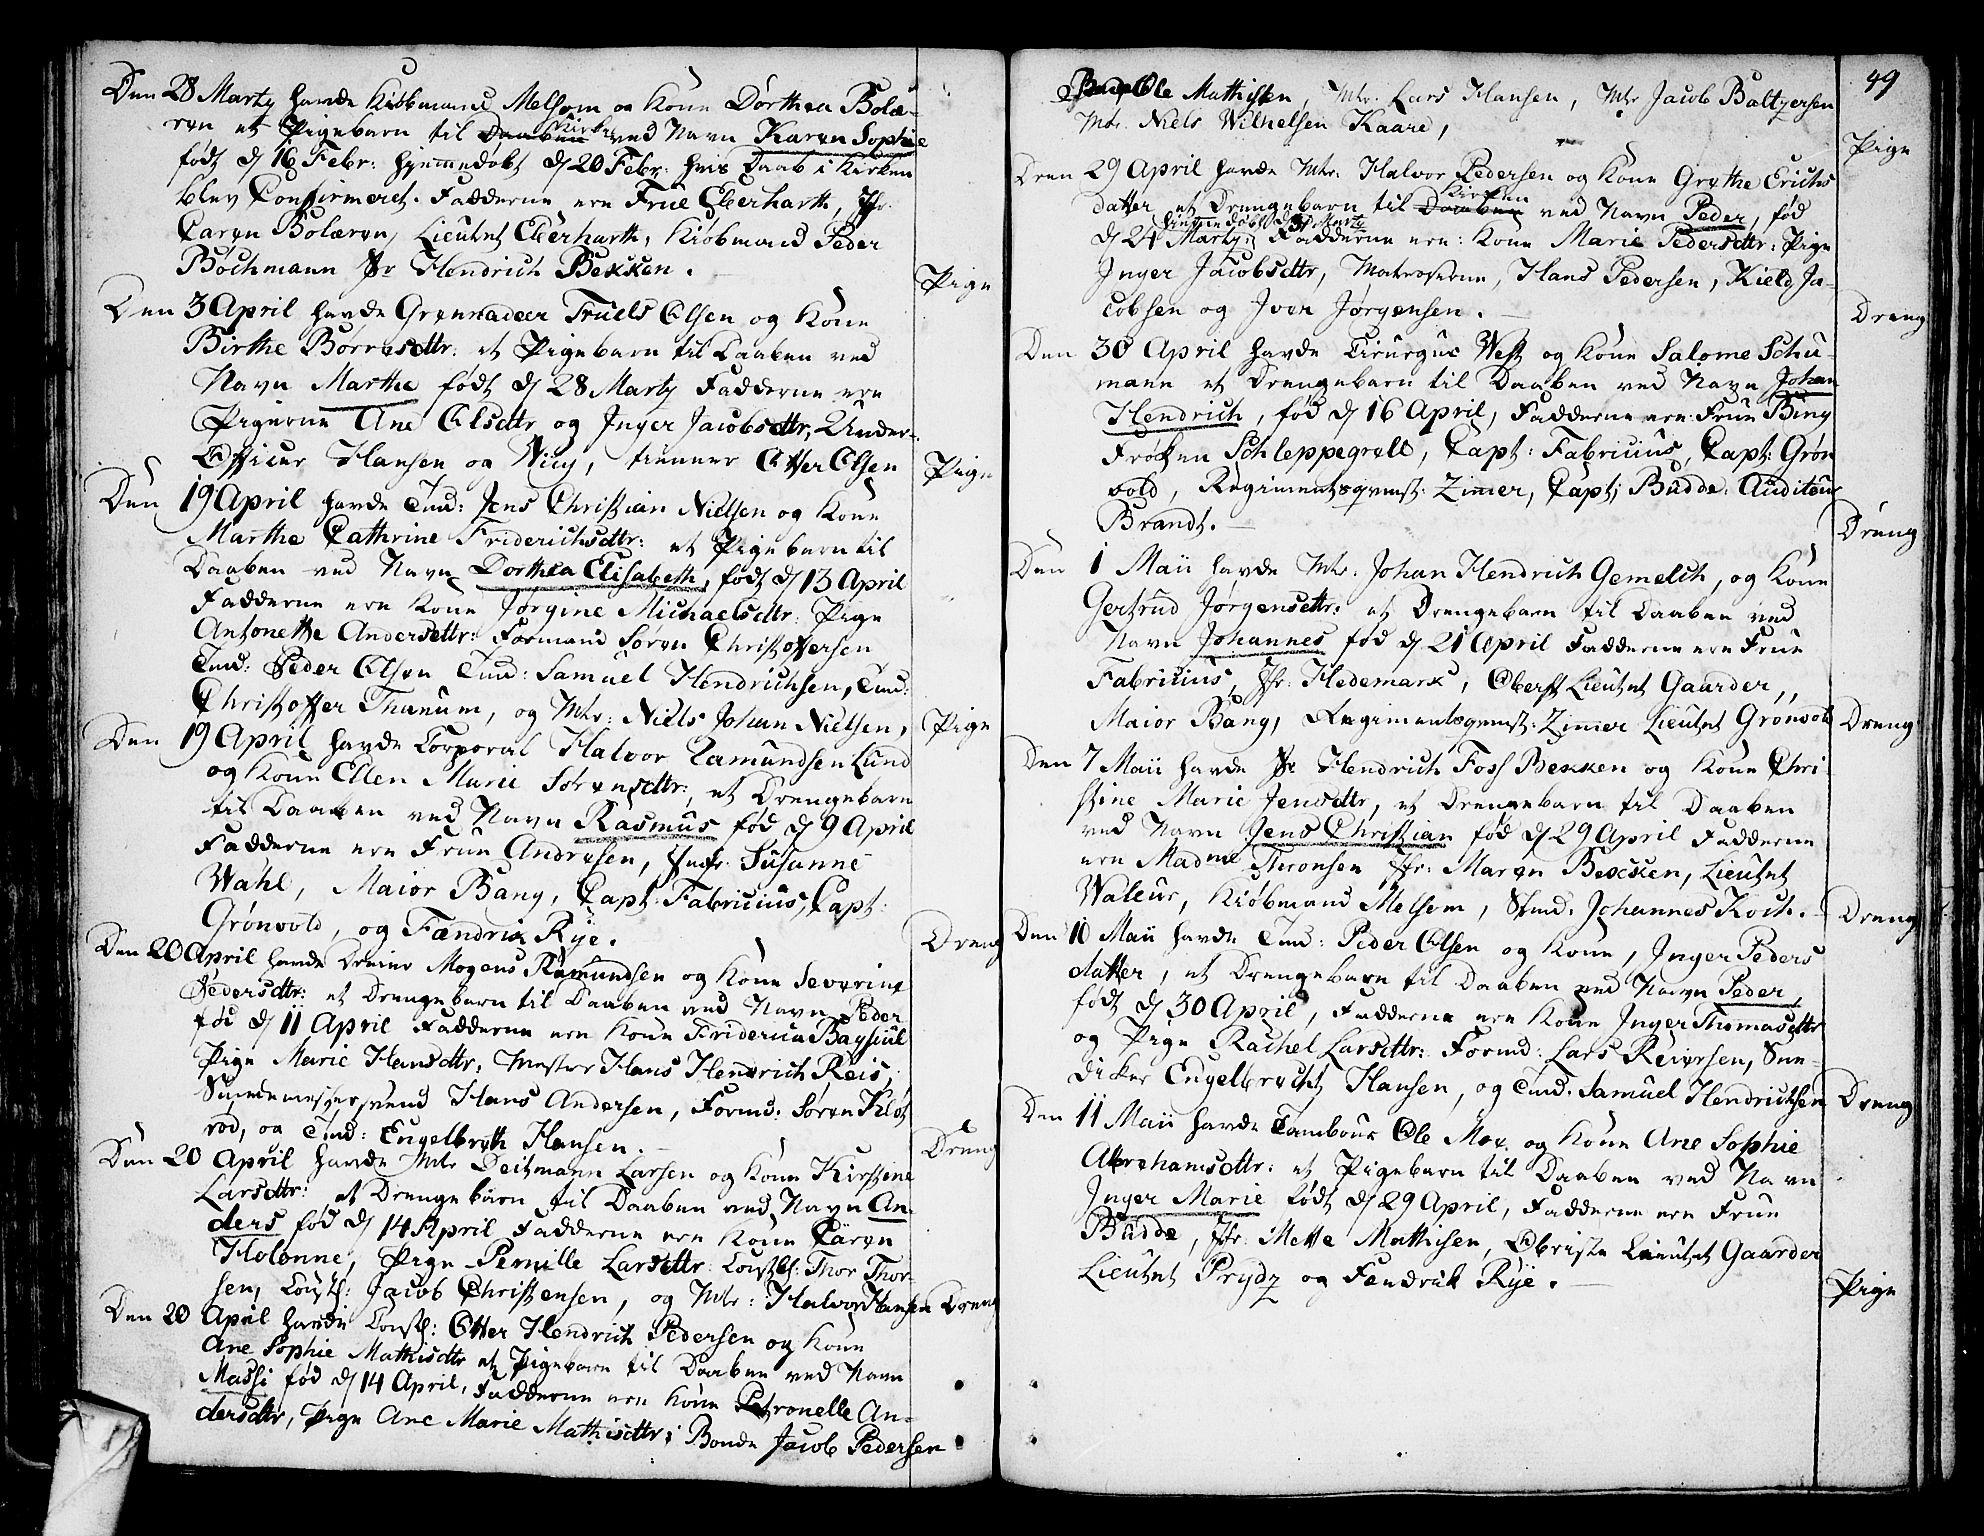 Den 28 Marty havde Kiøbmand Melsom og Kone Dorthea Bolæ-
ren et Pigebarn til Daaben Kirke ved Navn Karen Sophie
født d 16 Febr: hjemmedøbt d 20 Febr: hvis Daab i Kirken
blev Confirmeret. Fadderne ere Frue Eberharth, Jfr.
Caren Bolæren, Lieutnt Eberharth, Kiøbmand Peder
Bochmann Sr Hendrich Bekken.
Pige
Den 3 April havde Grennadeer Truels Olsen og Kone
Birthe Børresdttr: et Pigebarn til Daaben ved
Navn Marthe født d 28 Marty Fadderne ere
Pigerne Ane Olsdttr og Inger Jacobsdttr, Under-
Officer Hansen og Wiig, tienner Otter Olsen
Pige
Den 19 April havde Tmd: Jens Christian Nielsen og Kone
Marthe Cathrine Friderichsdttr: et Pigebarn til
Daaben ved Navn Dorthea Elisabeth, født d 13 April
Fadderne ere Kone Jørgine Michaelsdttr: Pige
Antonette Andersdttr: Formand Søren Christoffersen
Tmd: Peder Olsen Tmd: Samuel Hendrichsen, Tmd:
Christoffer Thanum, og Mtr: Niels Johan Nielsen,
Pige
Den 19 April havde Corporal Halvor Ramundsen Lund
og Kone Ellen Marie Sørensdttr: et Drengebarn
til Daaben ved Navn Rasmus fød d 9 April
Fadderne ere Frue Andresen, Jmfr: Susanne
Wahl, Maior Bang, Capt: Fabricius, Capt:
Grønvold, og Fændrix Rÿe.
Dreng
Den 20 April havde Dreier Mogens Ramundsen og Kone Severine
Pedersdttr: et Drengebarn til Daaben ved Navn Peder
fød d 11 April Fadderne ere Kone Friderica Baysiül
Pige Marie Hansdttr, Mester Hans Hendrich Reis,
Hans Andersen, Formd: Søren Kløt
rød, og Tmd: Engelbreth Hansen.
Dreng
Den 20 April havde Mtr Deitmann Larsen og Kone Kirstine
Larsdttr: et Drengebarn til Daaben ved Navn An-
ders fød d 14 April Fadderne ere Kone Caren
Holønne, Pige Pernille Larsdttr: Const: Thor Thor-
sen, Const: Jacob Christensen, og Mtr: Halvor Hansen
Dreng
Den 20 April havde Const: Otter Hendrich Pedersen og Kone
Ane Sophie Mathisdttr et Pigebarn til Daaben ved Navn
Massi fød d 14 April, Fadderne ere Kone Petronelle An-
dersdttr, Pige Ane Marie Mathisdttr; Bonde Jacob Pedersen
49
Ole Mathisen, Mtr. Lars Hansen, Mtr Jacob Baltzersen
Mtr. Niels Wilhelsen Kaare,
Pige
Den 29 April havde Mtr. Halvor Pedersen og Kone Grethe Erichs
datter et Drengebarn til Daaben Kirken ved Navn Peder, fød
d 24 Marty, hiemmedøbt d 31 Marty Fadderne ere: Kone Marie Pedersdttr: Pige
Inger Jacobsdttr, Matroserne, Hans Pedersen, Kield Ja-
cobsen og Iver Jørgensen.
Dreng
Den 30 April havde Cirurgus West og Kone Salome Schu-
mann et Drengebarn til Daaben ved Navn Johan
Hendrich, fød d 16 April, Fadderne ere Frue Bing
Frøken Schleppegrell, Capt: Fabricius, Capt: Grøn
vold, Regimentsqvmst: Zimer, Capt; Budde: Auditeur
Brandt.
Dreng
Den 1 Maii havde Mtr. Johan Hendrich Gemelch, og Kone
Gertrud Jørgensdttr: et Drengebarn til Daaben ved
Navn Johannes fød d 21 April Fadderne ere Frue
Fabricius, Jfr: Hedemark, Oberst Lieutnt Gaarder,
Maior Bang, Regimentsqvmst: Zimer Lieutnt Grønvold
Dreng
Den 7 Maii havde Sr Hendrich Foss Bekken og Kone Chri-
stine Marie Jensdttr, et Drengebarn til Daaben
ved Navn Jens Christian fød d 29 April Fadderne
ere Madme Theronsen Jfr: Maren Bekken, Lieutnt
Waleur, Kiøbmand Melsom, Stud. Johannes Koch.
Dreng
Den 10 Maii havde Tmd: Peder Olsen og Kone, Inger Peders
datter, et Drengebarn til Daaben ved Navn Peder,
født d 30 April, Fadderne ere Kone Inger Thomasdttr
og Pige Rachel Larsdttr: Formd: Lars Reiersen, Sne-
dicker Engelbrecht Hansen, og Tmd. Samuel Hendrichsen
Dreng
Den 11 Maii havde Tambour Ole Moe og Kone Ane Sophie
Abrahamsdttr: et Pigebarn til Daaben ved Navn
Inger Marie født d 29 April, Fadderne ere Frue
Budde, Jfr: Mette Mathisen, Obriste Lieutnt Gaarder
Lieutnt Prydz og Fendrik Rÿe.
Pige